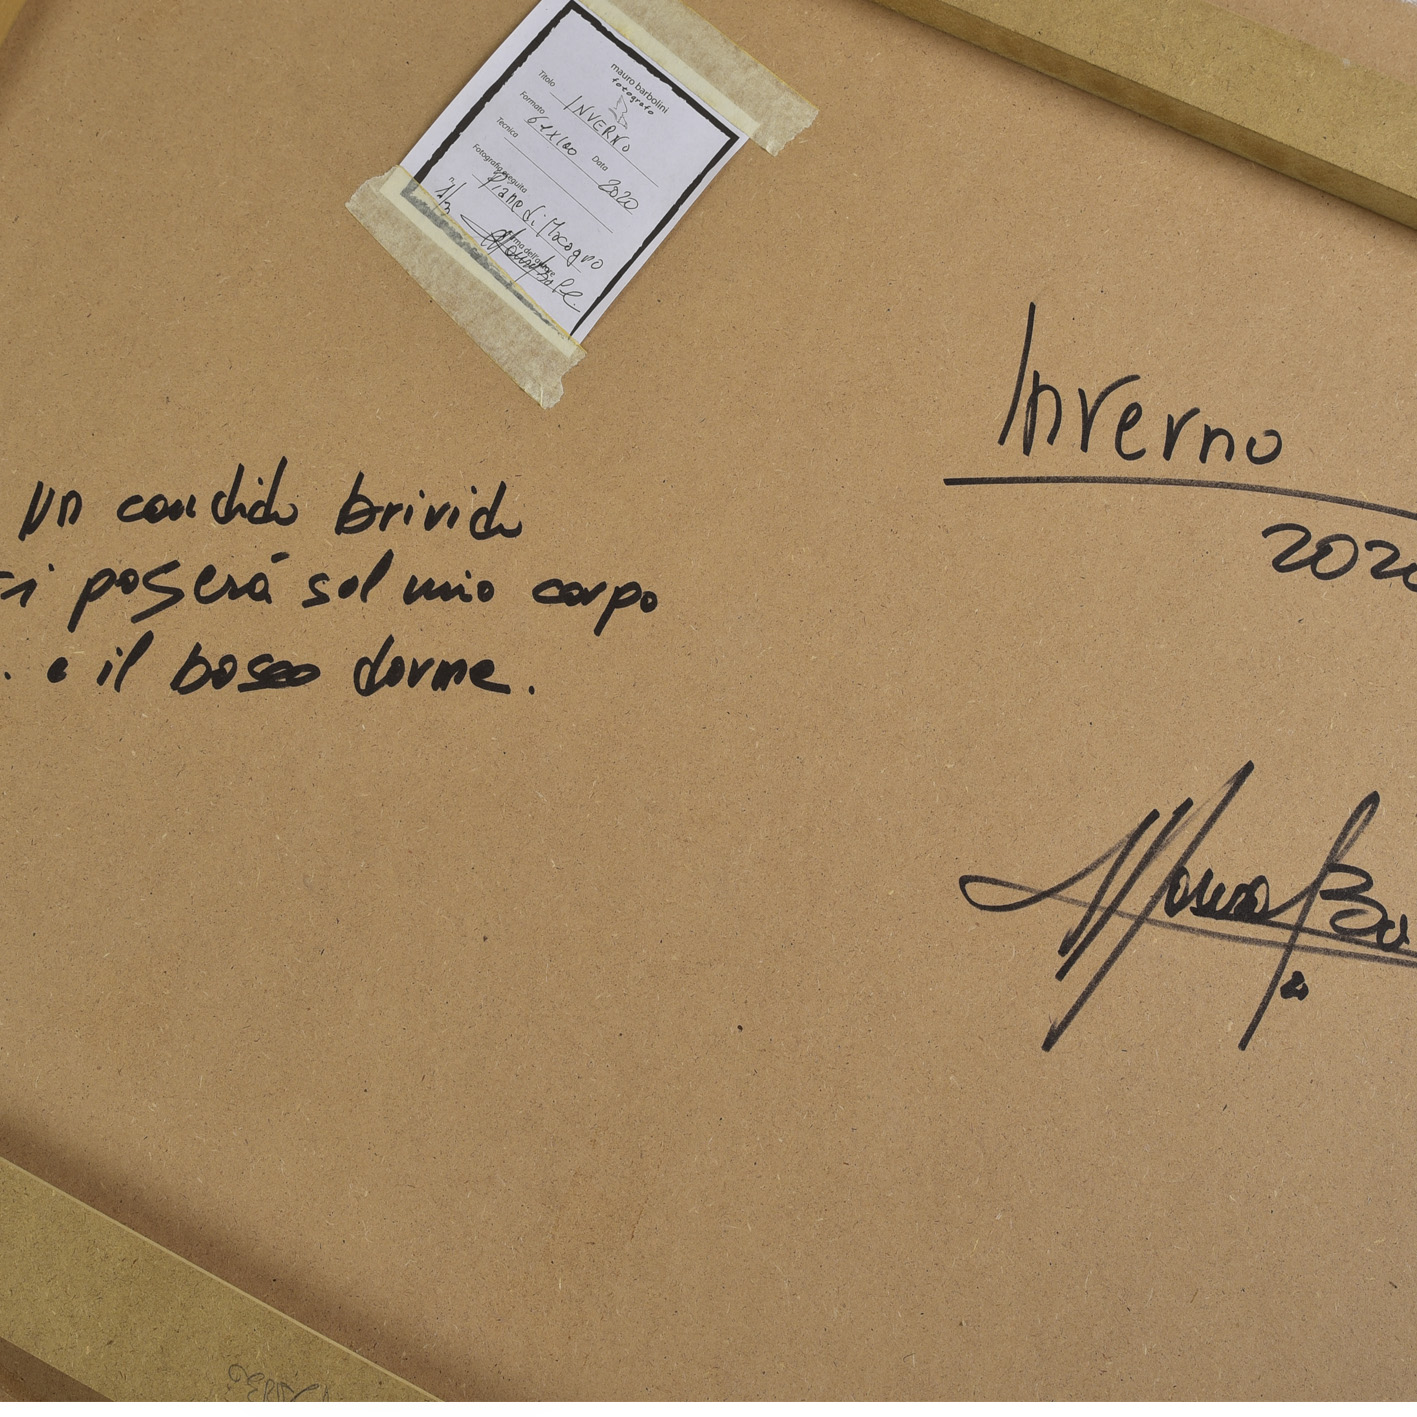 mauro barbolini
fotografo
Titolo INVERNO
Formato 64x100 Data 2020
Tecnica
Fotografia eseguita Piano di Macogno
n. 1/3
Firma dell'autore
Inverno
2020
Un candido brivido
si poserà sul mio corpo
. e il bosco dorme.
Mauro Ba
20